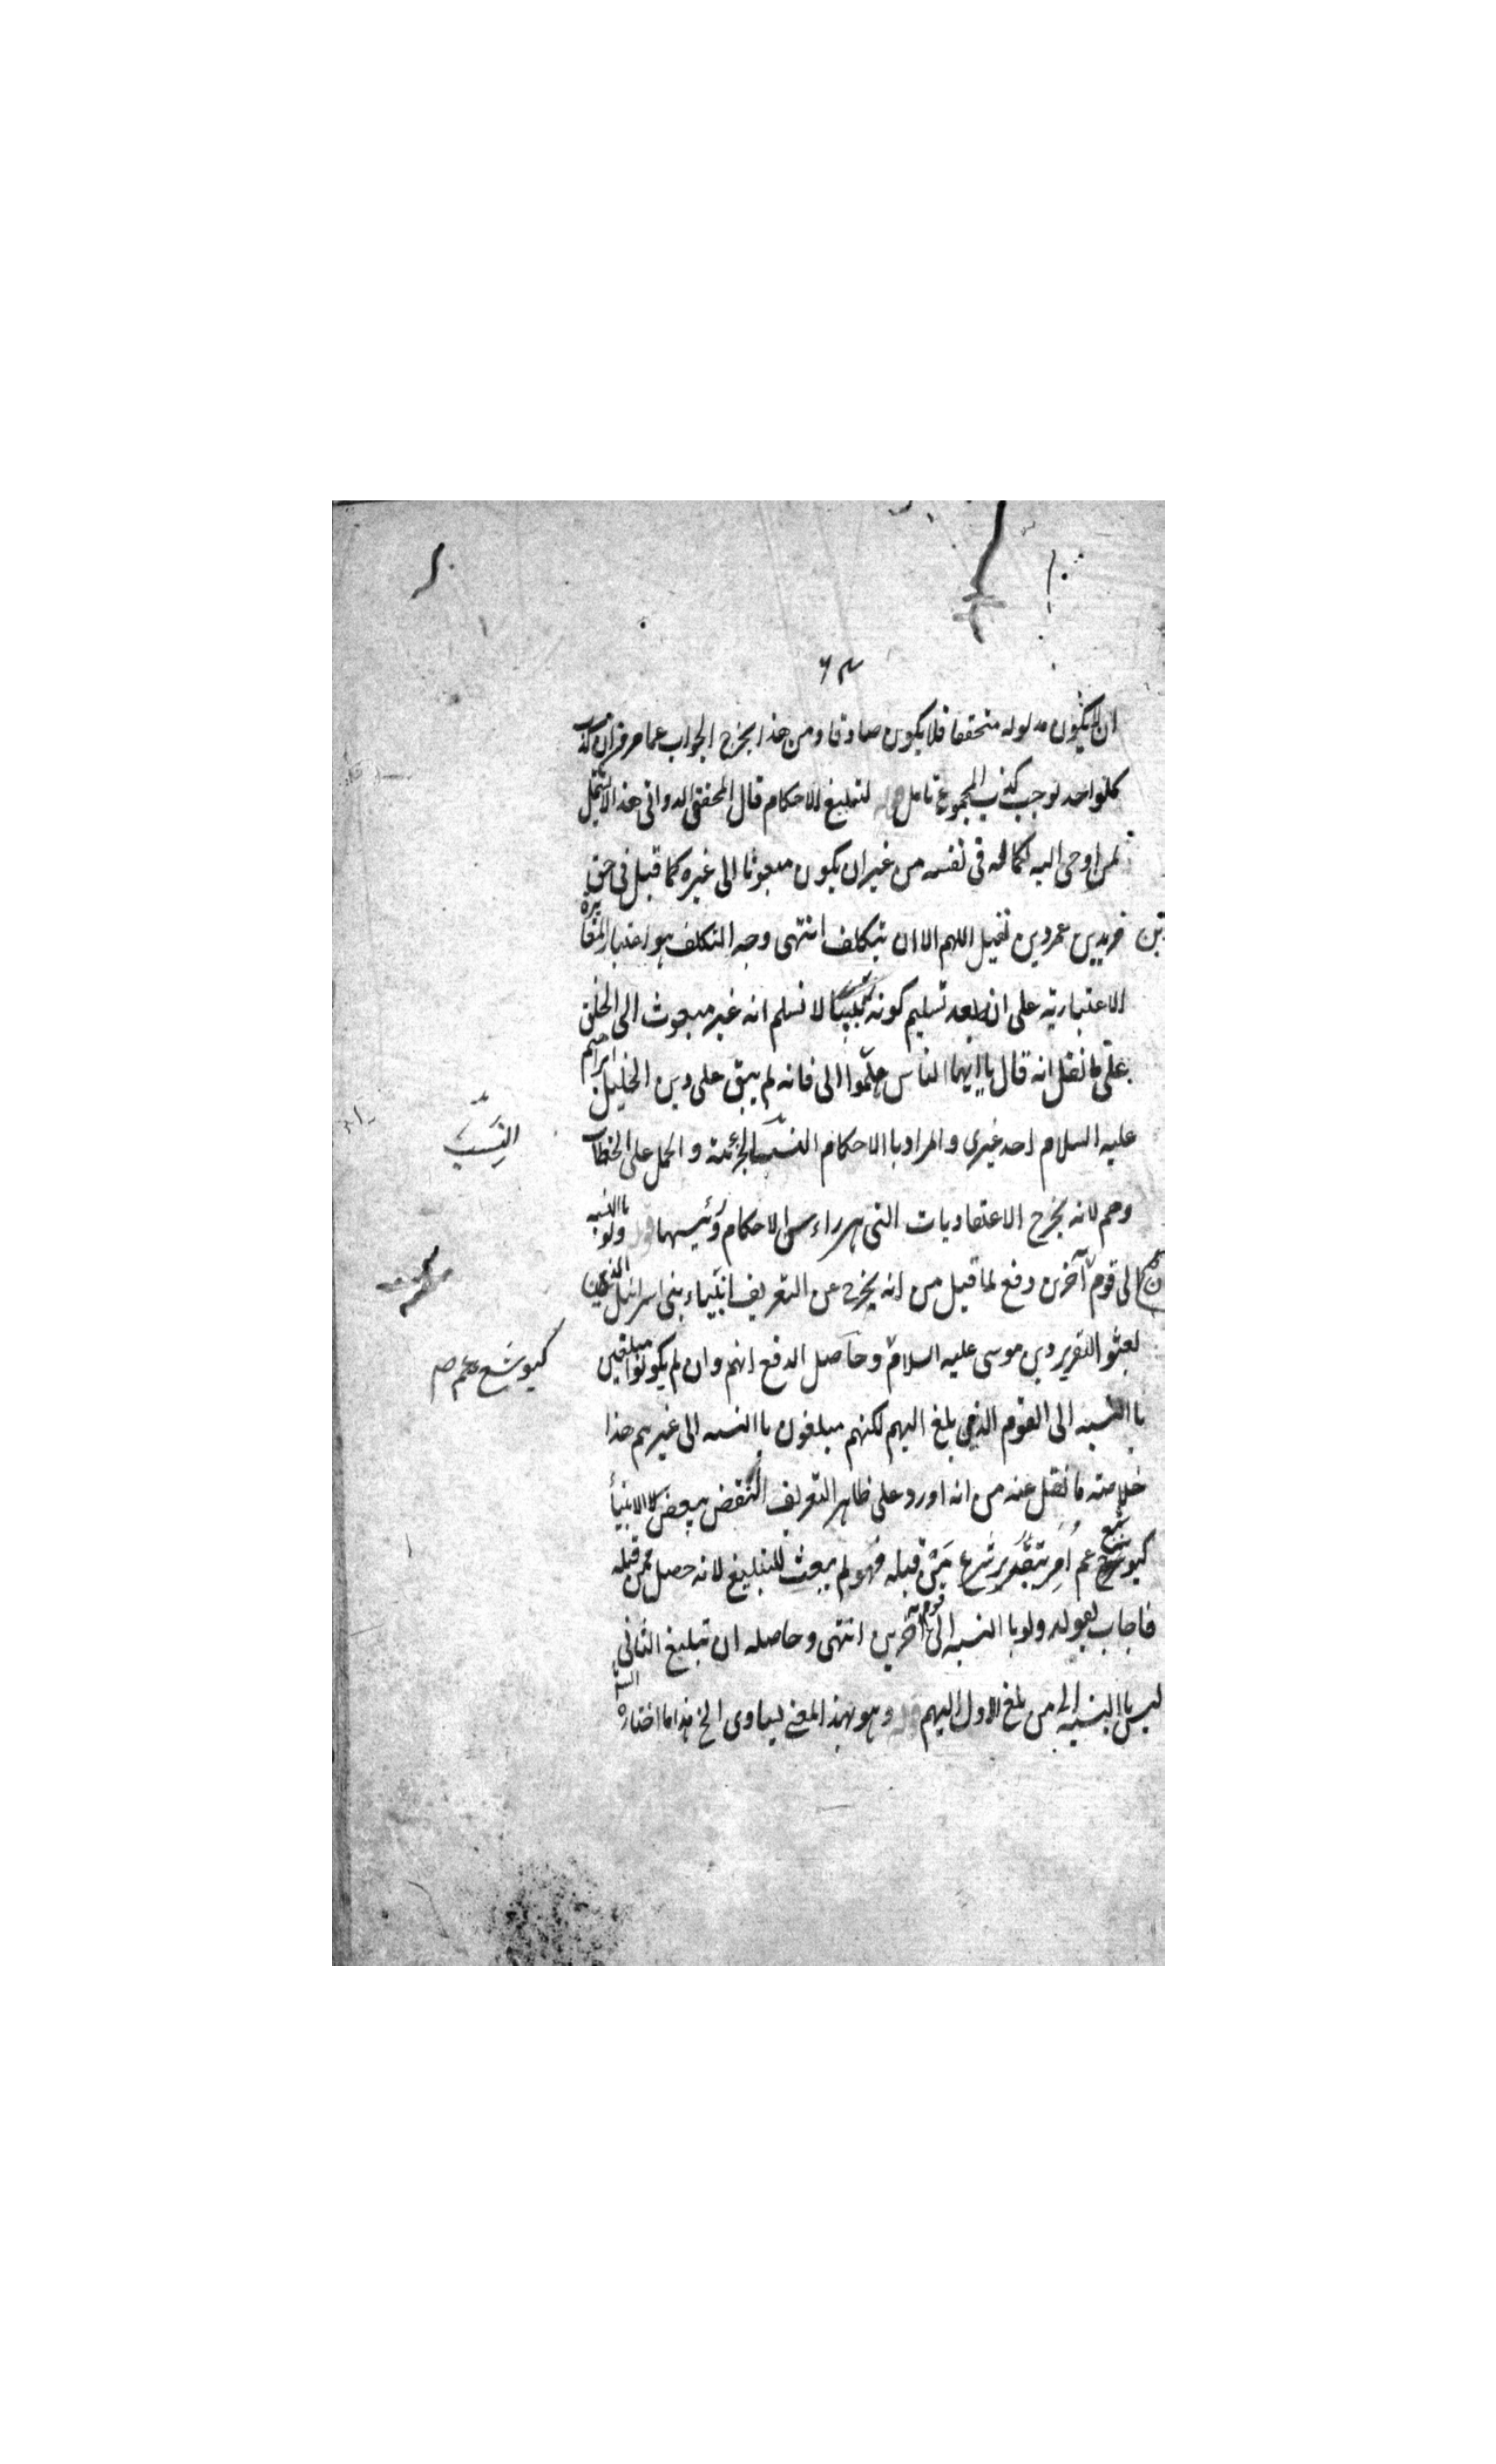 ٦٣
ان لا يكون مدلوله متحققا فلا يكون صادقا ومن هذا يخرج الجواب عما مر من ان كذب
كلواحد لوجب كذب المجموع تامل قوله لتبليغ الاحكام قال المحقق الدوانى هذا لا يشمل
لمن اوحى اليه لكماله فى نفسه من غير ان يكون مبعوثا الى غيره كما قيل فى حق
زيد بن عمرو بن نفيل اللهم الا ان يتكلف انتهى وجه التكلف هو اعتبار المغايرة
الاعتبارية على ان بعد تسليم كونه نبيا لا نسلم انه غير مبعوث الى الخلق
على ما نقل انه قال يا ايها الناس هلموا الى فانه لم يبق على دين الخليل ابراهيم
عليه السلام احد غيرى والمراد بالاحكام النسب الجزئية والحمل على الخطاب
وهم لانه يخرج الاعتقاديات التى هى راس الاحكام ورئيسها قوله ولو باالنسبه
الى قوم آخرين دفع لما قيل من انه يخرج عن التعريف انبياء بنى اسرائيل الذين
بعثوا لتقرير دين موسى عليه السلام وحاصل الدفع انهم وان لم يكونوا مبلغين
باالنسبه الى القوم الذى بلغ اليهم لكنهم مبلغون باالنسبه الى غيرهم هذا
خلاصته ما نقل عنه من انه اورد على ظاهر التعريف النقض ببعض الانبيأ
كيوشع عم اُمِر بتقرير شرع مَنْ قبله فهو لم يبعث للتبليغ لانه حصل ممن قبله
فاجاب بقوله ولو باالنسبه الى قوم آخرين انتهى وحاصله ان تبليغ الثانى
ليس باالنسبه الى من بلغ الاول اليهم قوله وهو بهذا المعنى يساوى الخ هذا ما اختاره
النسب
كيوشع عم صم